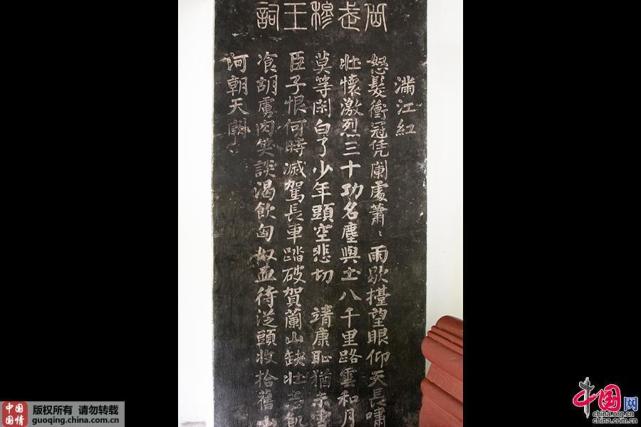 岳武穆王詞
滿江紅
怒髮衝冠凭闌處蕭〻雨歇擡望眼仰天長嘯
壯懷激烈三十功名塵與土八千里路雲和月
莫等閑白了少年頭空悲切 靖康恥猶未
臣子恨何時滅駕長車踏破賀蘭山缺壯志
飡胡虜肉笑談渴飲匈奴血待從頭收拾舊
河朝天闕
中国国情
版权所有 请勿转载
guoqing.china.com.cn
中国网
china.com.cn